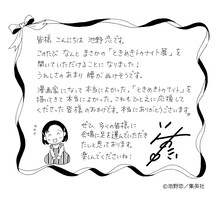 皆様 こんにちは 池野 恋です。
このたび なんと まさかの「ときめきトゥナイト展」を
開いていただけることになりました!
うれしさのあまり 腰がぬけそうです。
漫画家になって 本当によかった。「ときめきトゥナイト」を
描いてきて 本当によかった。これもひとえに応援して
くださった 皆様のおかげです。本当にありがとうございます。
ぜひ 多くの皆様に
会場に足を運んでいただき
たいと思っております。
楽しんでくださいね!
©池野恋/集英社